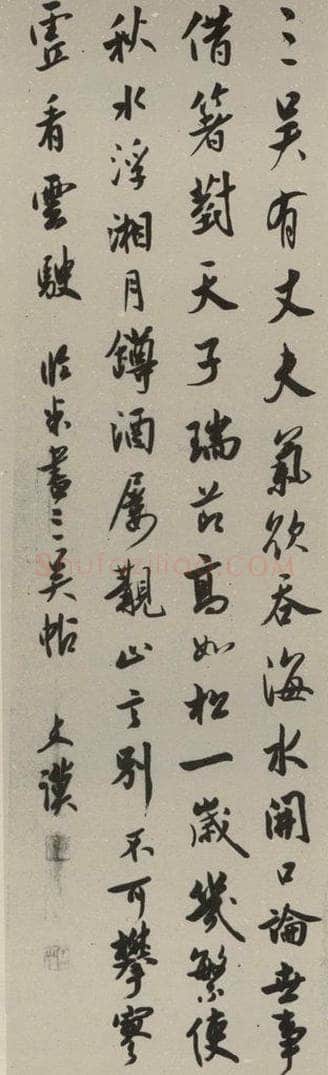 三吳有丈夫氣欲吞海水開口論世事
借箸對天子瑞節高如松一歲幾繁使
秋水浮湘月罇酒屢親止言別不可攀寥
虛看雲駛 臨米書三吳帖